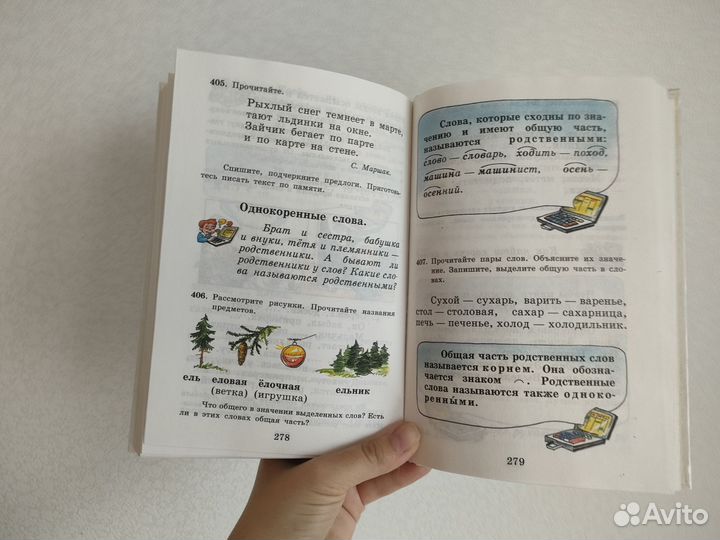 405. Прочитайте.
Рыхлый снег темнеет в марте,
тают льдинки на окне.
Зайчик бегает по парте
и по карте на стене.
С. Маршак.
Спишите, подчеркните предлоги. Приготовь-
тесь писать текст по памяти.
Однокоренные слова.
Брат и сестра, бабушка
и внуки, тётя и племянники —
родственники. А бывают ли
родственники у слов? Какие сло-
ва называются родственными?
406. Рассмотрите рисунки. Прочитайте названия
предметов.
ель еловая ёлочная ельник
(ветка) (игрушка)
Что общего в значении выделенных слов? Есть
ли в этих словах общая часть?
278
Слова, которые сходны по зна-
чению и имеют общую часть,
называются родственными:
слово — словарь, ходить — поход,
машина — машинист, осень —
осенний.
407. Прочитайте пары слов. Объясните их значе-
ние. Запишите, выделите общую часть в сло-
вах.
Сухой — сухарь, варить — варенье,
стол — столовая, сахар — сахарница,
печь — печенье, холод — холодильник.
Общая часть родственных слов
называется корнем. Она обозна-
чается знаком ⌒. Родственные
слова называются также одноко-
ренными.
279
Avito